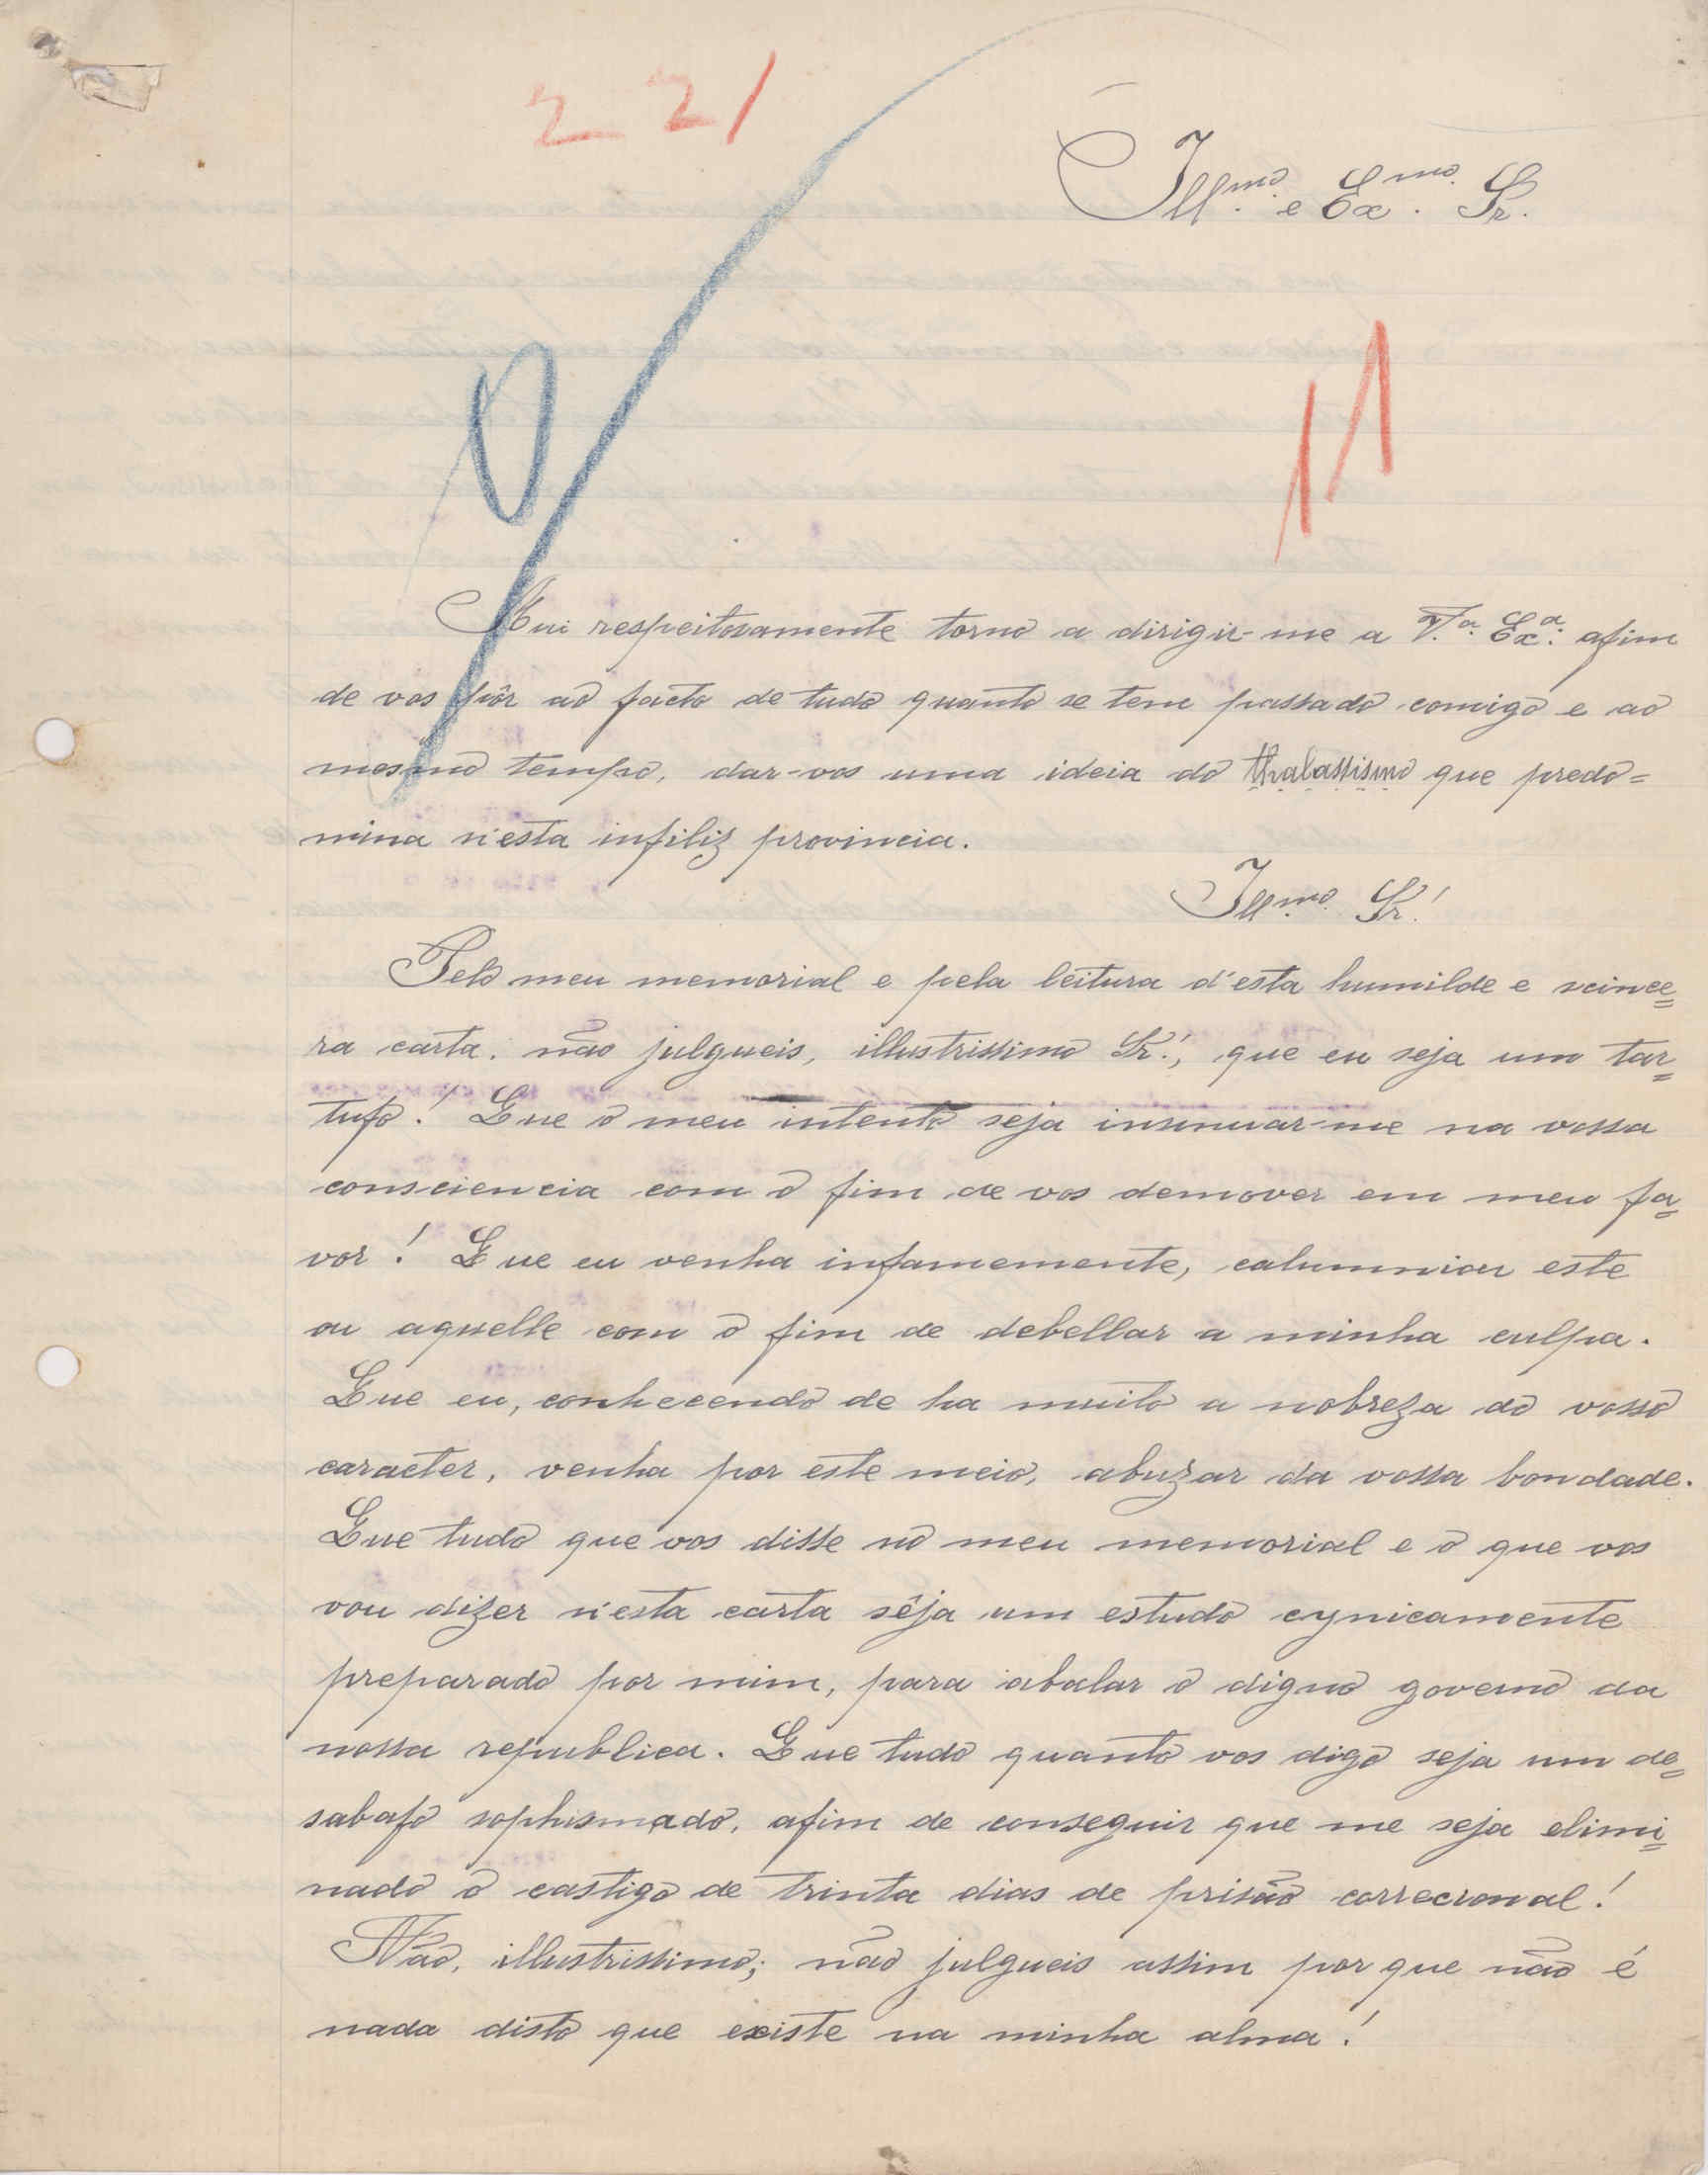 221
Ill.mo e Ex.mo Sr.
11
Mui respeitosamente torno a dirigir-me a V.ª Ex.ª afim
de vos pôr ao facto de tudo quanto se tem passado comigo e ao
mesmo tempo, dar-vos uma ideia do thalassismo que predo=
mina n'esta infiliz provincia.
Ill.mo Sr.!
Pelo meu memorial e pela leitura d'esta humilde e scince=
ra carta, não julgueis, illustrissimo Sr.!, que eu seja um tar=
tufo! Que o meu intento seja insinuar-me na vossa
consciencia com o fim de vos demover em meu fa=
vor! Que eu venha infamemente, calumniar este
ou aquelle com o fim de debellar a minha culpa.
Que eu, conhecendo de ha muito a nobreza do vosso
caracter, venha por este meio, abuzar da vossa bondade.
Que tudo que vos disse no meu memorial e o que vos
vou dizer n'esta carta sêja um estudo cynicamente
preparado por mim, para abalar o digno governo da
nossa republica. Que tudo quanto vos digo seja um de=
sabafo sophismado, afim de conseguir que me seja elimi=
nado o castigo de trinta dias de prisão correcional!
Não, illustrissimo; não julgueis assim por que não é
nada disto que existe na minha alma!